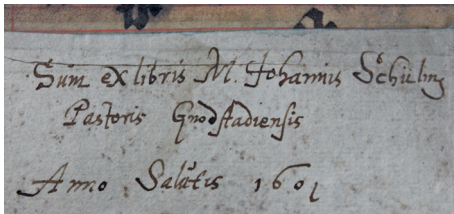 Sum ex libris M. Johannis Schüling
Pastoris Gnodstadiensis
Anno Salutis 1601